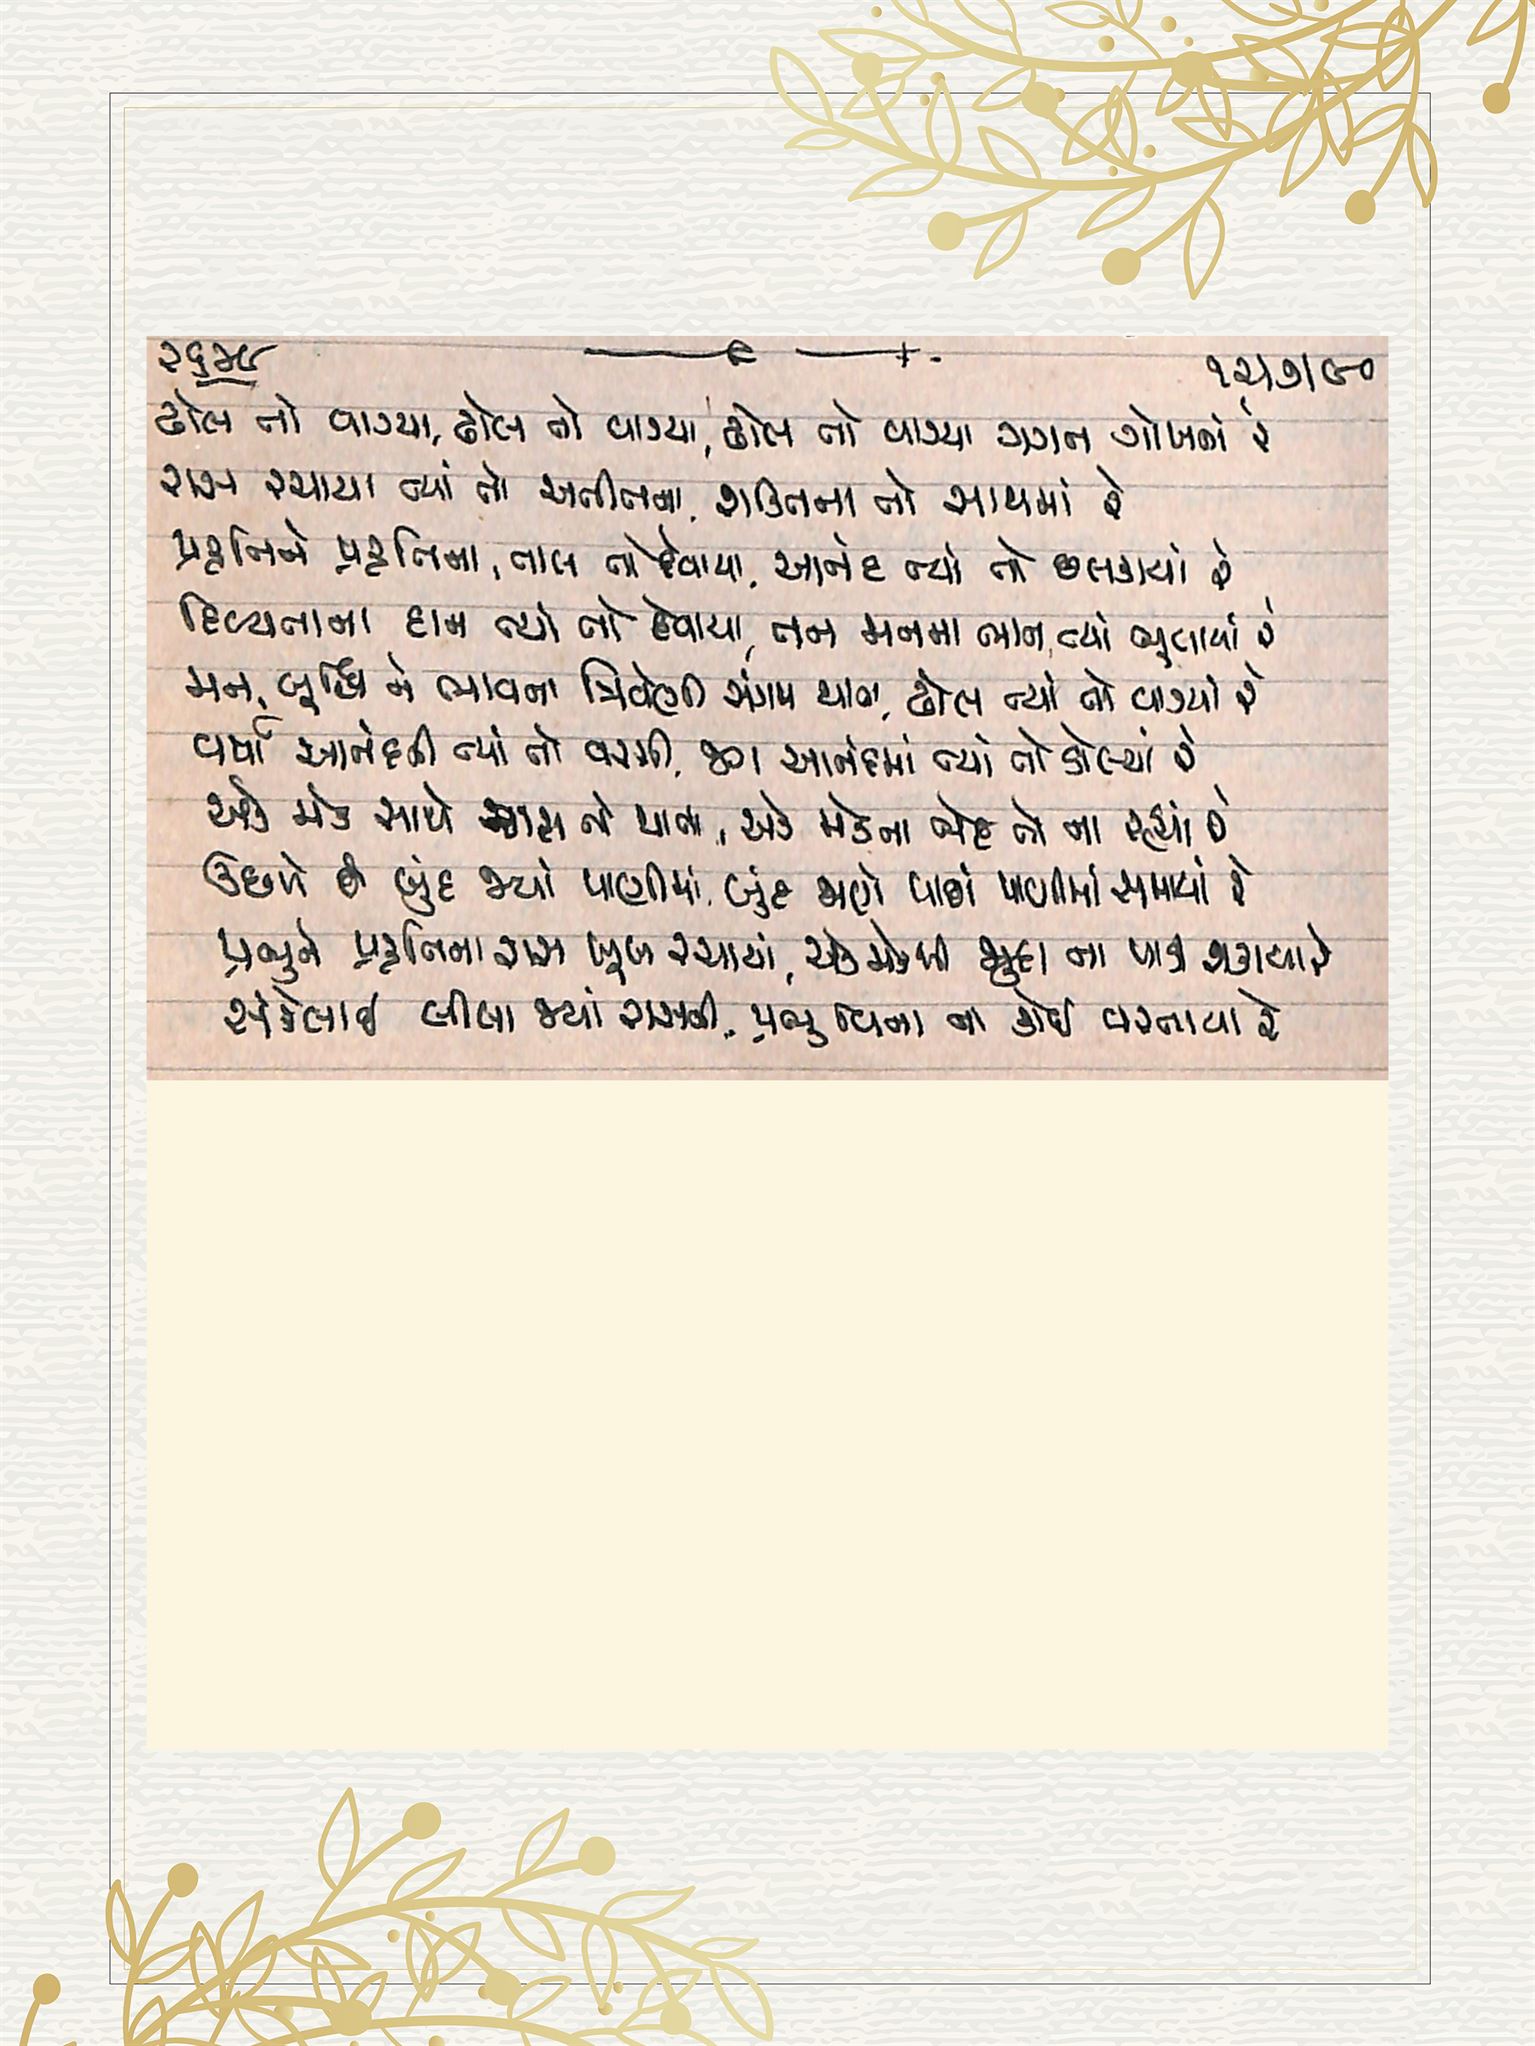 ૨૬૩૯
૧૨/૭/૯૦
ઢોલ તો વાગ્યા, ઢોલ તો વાગ્યા, ઢોલ તો વાગ્યા ગગન ગોખનાં રે
રાસ રચાયા ત્યાં તો અતીતના, શક્તિના તો સાથમાં રે
પ્રકૃતિને પ્રકૃતિના, તાલ તો દેવાયા, આનંદ ત્યાં તો છલકાયાં રે
દિવ્યતાના દાન ત્યાં તો દેવાયા, તન મનના ભાન ત્યાં ભૂલાયાં રે
મન, બુદ્ધિ ને ભાવના ત્રિવેણી સંગમ થાતા, ઢોલ ત્યાં તો વાગ્યાં રે
વર્ષા આનંદની ત્યાં તો વરસી, જગ આનંદમાં ત્યાં તો ડોલ્યાં રે
એક મેક સાથે રાસ તો થાતા, એક મેકના ભેદ તો ના રહ્યાં રે
ઉછળે છે બુંદ જ્યાં પાણીમાં, બુંદ જાણે પાછાં પાણીમાં સમાયાં રે
પ્રભુને પ્રકૃતિના રાસ ખૂબ રચાયાં, એક મેકથી જુદા ના પાડી શકાયા રે
સંકેલાઈ લીલા જ્યાં રાસની, પ્રભુ વિના ના કોઈ વરતાયા રે